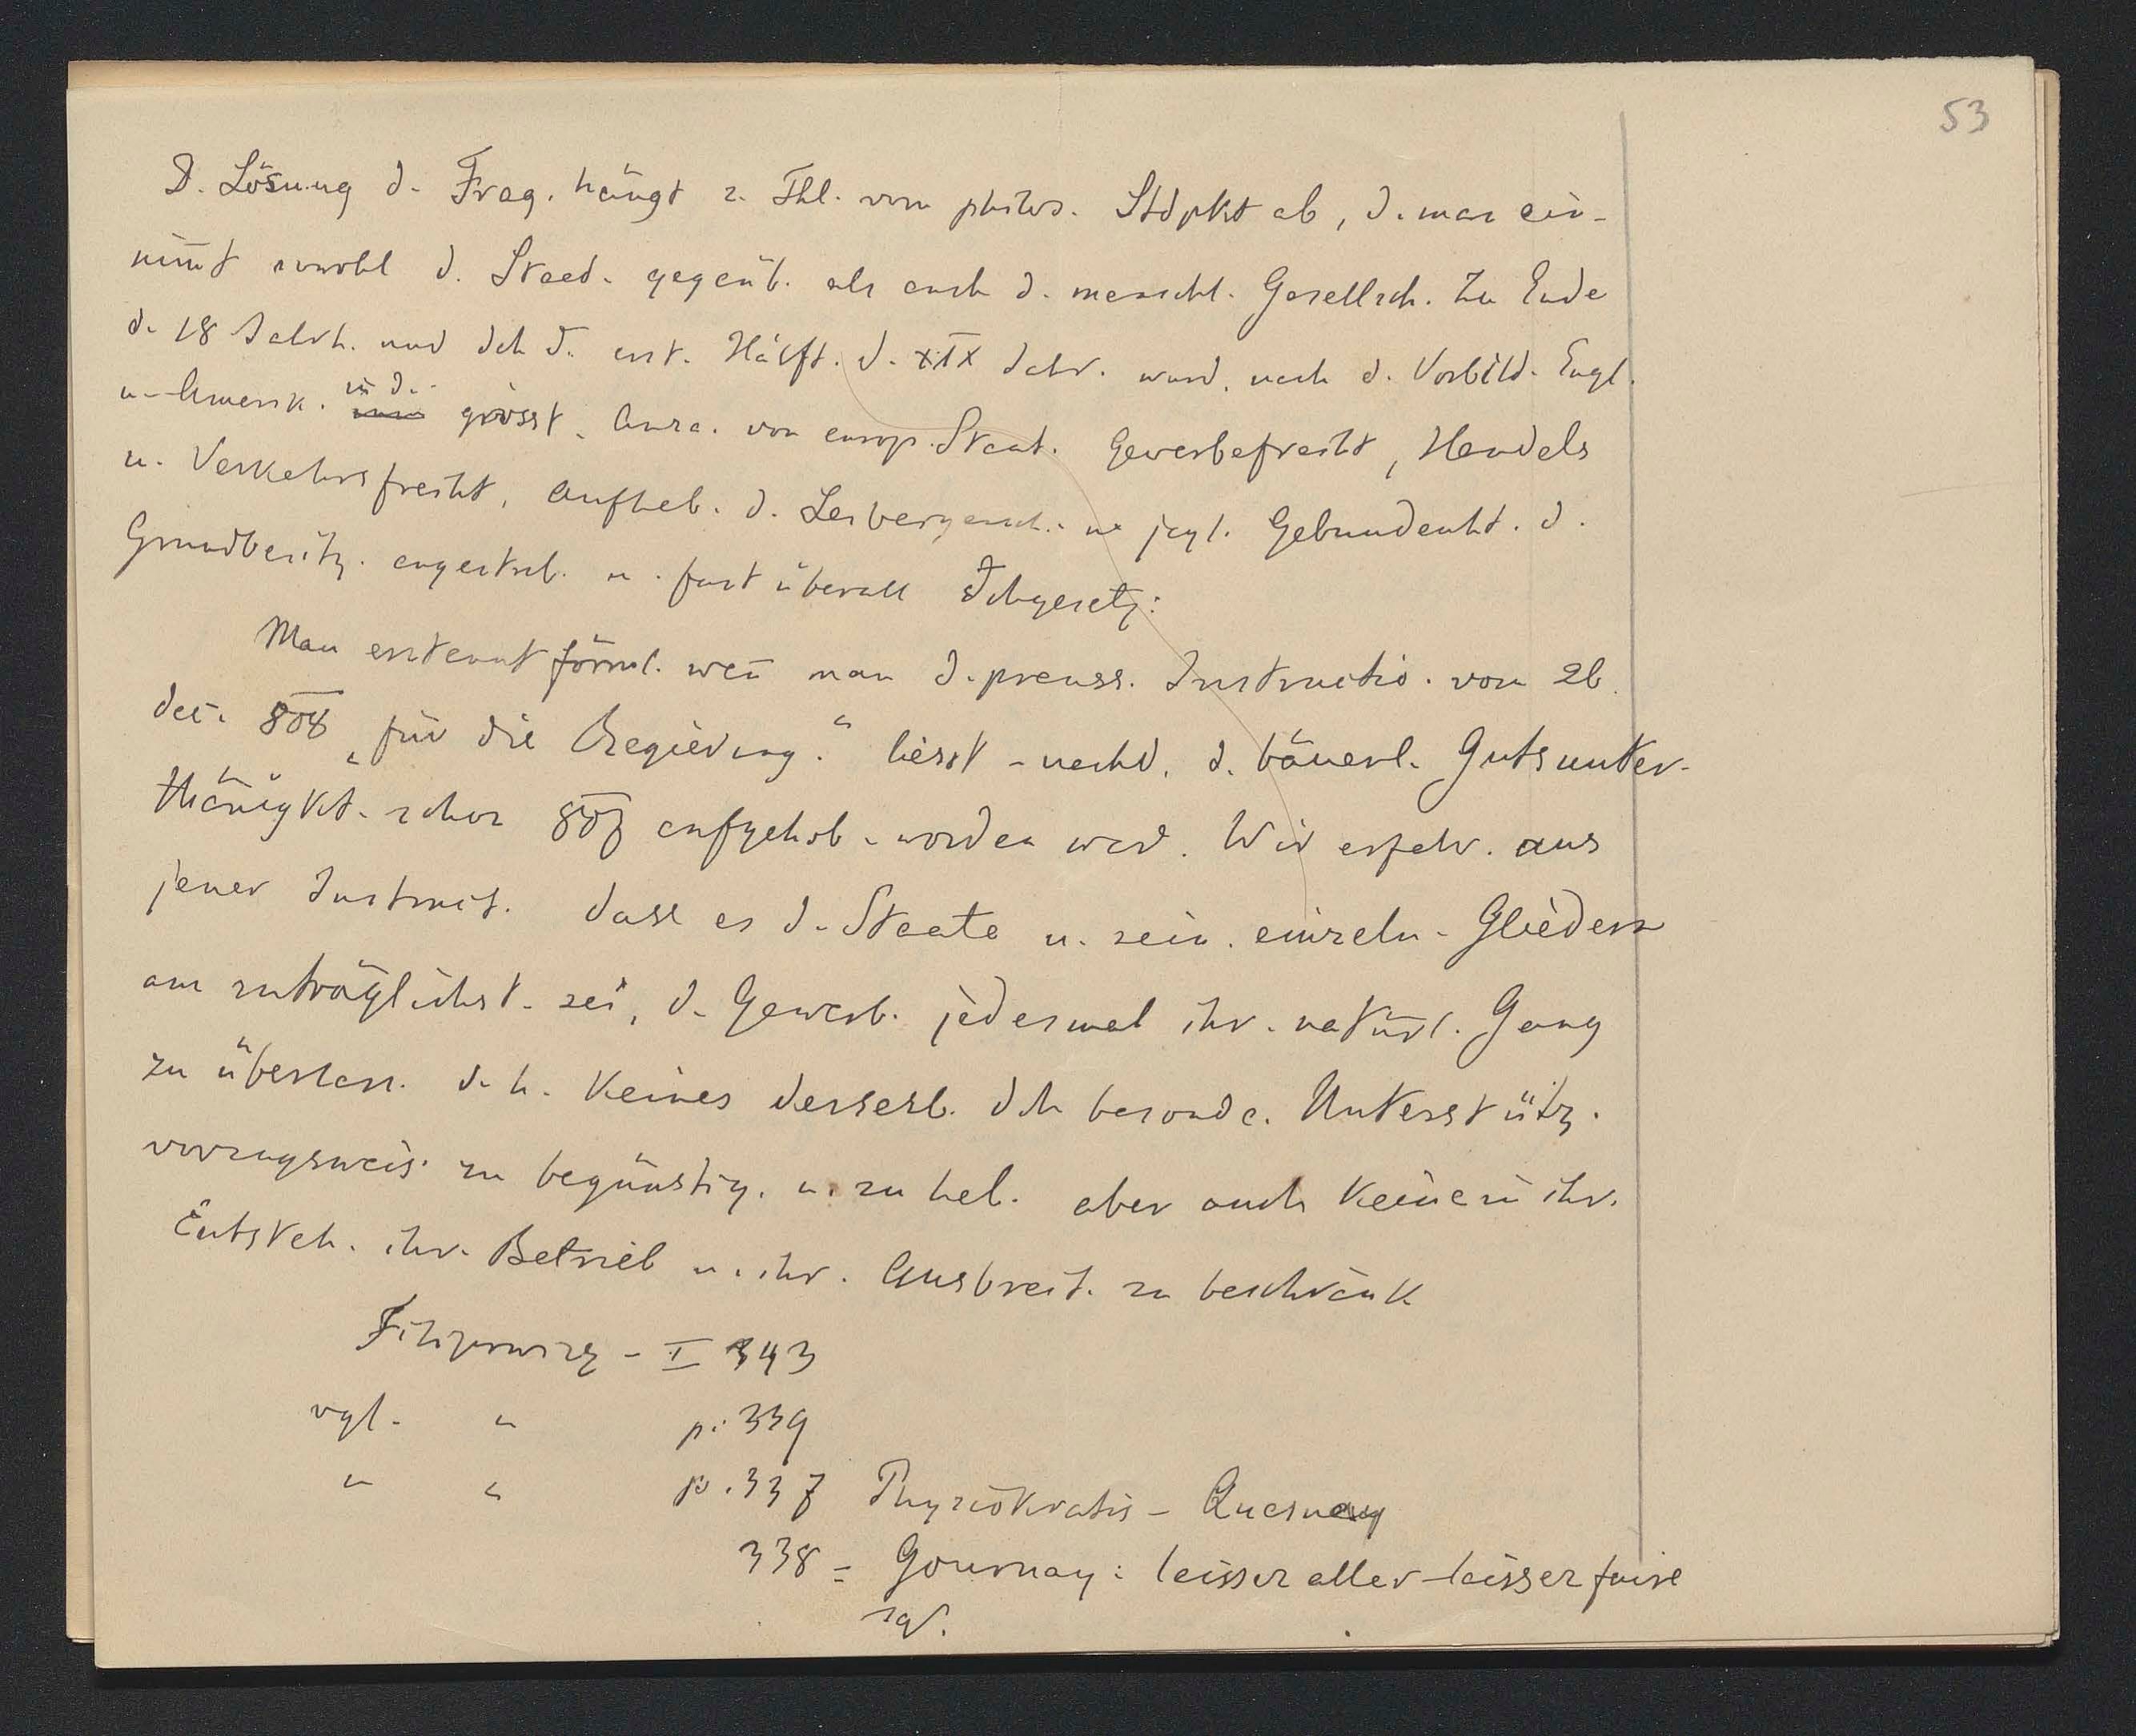 53
D. Lösung d. Frag. hängt z. Thl. vom philos. Stdpkt ab, d. man ein-
nim̄t sowohl d. Staat. gegenüb. als auch d. menschl. Gesellsch. Zu Ende
d. 18 Jahrh. und dch d. erst. Hälft. d. XIX Jahr. wurd. nach d. Vorbild. Engl.
u. Amerik. in d. grösst. Anza. von europ. Staat. Gewerbefreiht, Handels
u. Verkehrsfreiht, Aufheb. d. Leibeigensch. u. jegl. Gebundenht. d.
Grundbesitz. angestreb. u. fast überall dchgesetz:
Man erstaunt förml. wen̄ man d. preuss. Instructio. vom 26.
dec. 808 „für die Regierung." liesst - nachd. d. bäuerl. Gutsunter-
thänigkt. schon 807 aufgehob. worden war. Wir erfahr. aus
jener Instruct. dass es d. Staate u. sein. einzeln. Gliedern
am zuträglichst. sei, d. Gewerb. jedesmal ihr. natürl. Gang
zu überlass. d. h. keines derselb. dch besonde. Unterstütz.
vorzugsweis. zu begünstig. u. zu heb. aber auch keine in ihr.
Entsteh. ihr. Betrieb u. ihr. Ausbreit. zu beschränk
- I 343
vgl. " p. 339
" " p. 337 Physiokratis - Quesnay
338 = Gournay: laisser aller laisser faire
sq.